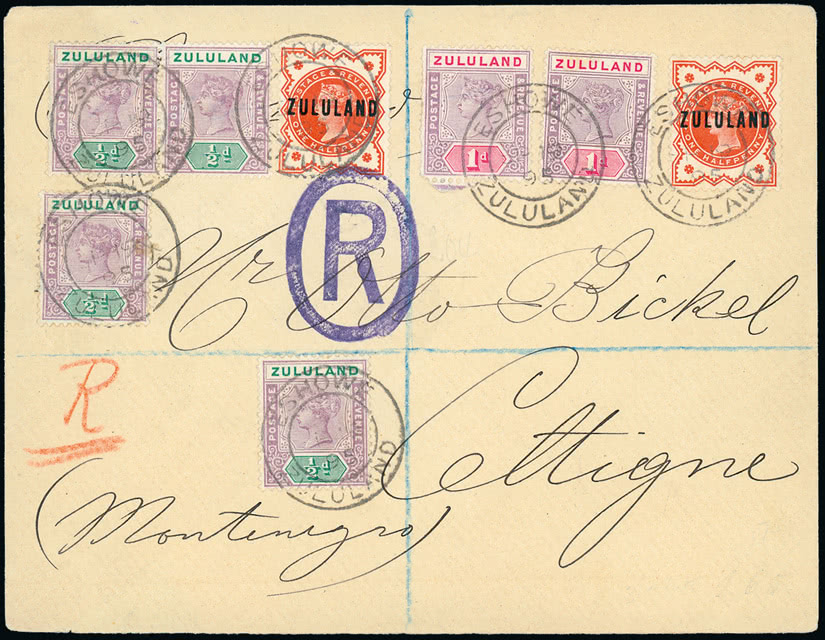 ZULULAND ZULULAND ZULULAND ZULULAND ZULULAND ZULULAND
POSTAGE & REVENUE POSTAGE & REVENUE POSTAGE & REVENUE POSTAGE & REVENUE POSTAGE & REVENUE POSTAGE & REVENUE
½d ½d ONE HALFPENNY 1d 1d ONE HALFPENNY
ESHOWE ESHOWE ESHOWE
ZULULAND ZULULAND ZULULAND
ZULULAND
POSTAGE & REVENUE
½d
R
Mr Otto Bickel
R
ZULULAND
POSTAGE & REVENUE
½d
ESHOWE
ZULULAND
Cettigne
(Montenegro)